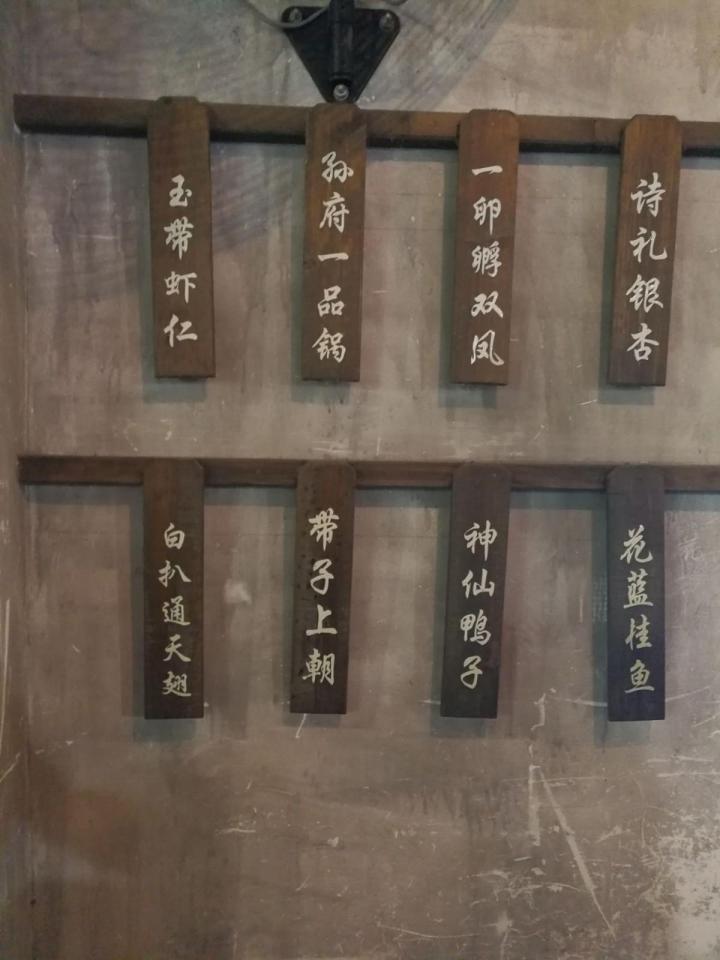 玉带虾仁
孙府一品锅
一卵孵双凤
诗礼银杏
白扒通天翅
带子上朝
神仙鸭子
花蓝桂鱼